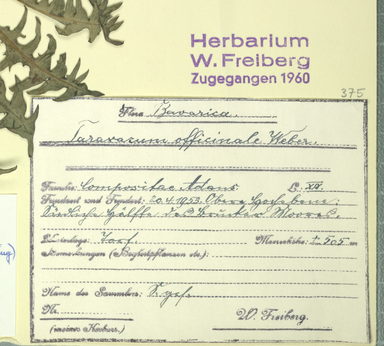 Herbarium
W. Freiberg
Zugegangen 1960
375
Flora Bavarica.
Taraxacum officinale Weber.
Familie: Compositae Adans L: XIX.
Fundort und Fundzeit: 20.4.1953. Obere
Südliche Hälfte des Brucker Moores.
Unterlage: Torf. Meereshöhe: ± 505 m
Bemerkungen (Begleitpflanzen etc.):
Name des Sammlers:
Nr.
(meines Herbars.) W. Freiberg.